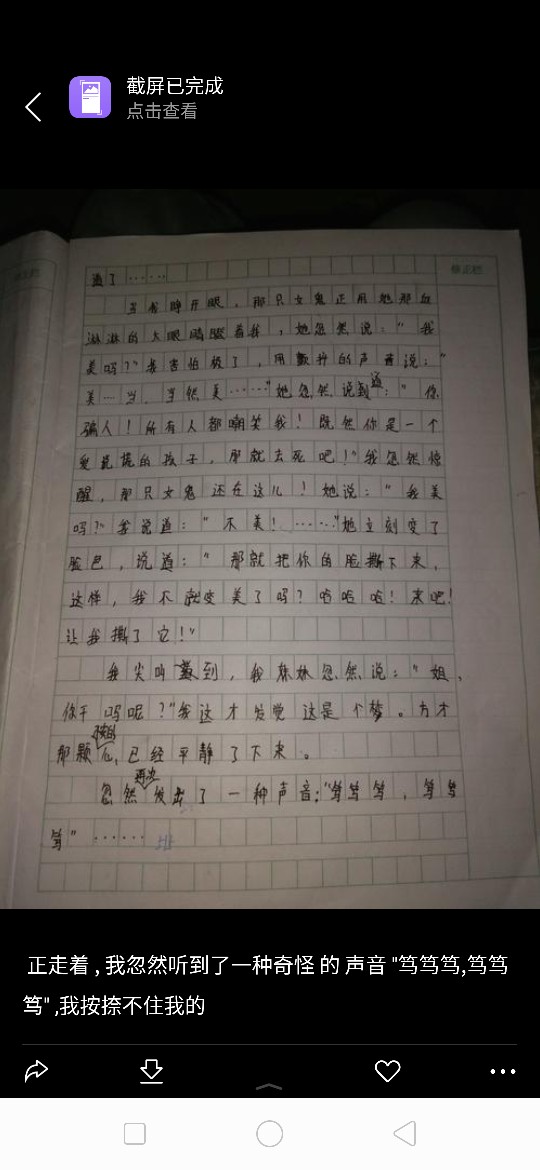 截屏已完成
点击查看
道了……
当我睁开眼，那只女鬼正用她那血
淋淋的大眼睛盯着我，她忽然说："我
美吗？"我害怕极了，用颤抖的声音说："
美…当，当然美……"她忽然说道："你
骗人！所有人都嘲笑我！既然你是一个
爱说谎的孩子，那就去死吧！"我忽然惊
醒，那只女鬼还在这儿！她说："我美
吗？"我说道："不美！……"她立刻变了
脸色，说道："那就把你的脸撕下来，
这样，我不就变美了吗？哈哈哈！来吧！
让我撕了它！"
我尖叫着到，我妹妹忽然说："姐，
你干吗呢？"我这才发觉这是个梦。方才
那颗心，已经平静了下来。
忽然再次发出了一种声音："笃笃笃，笃笃
笃"……
正走着，我忽然听到了一种奇怪 的 声音 "笃笃笃,笃笃
笃" ,我按捺不住我的